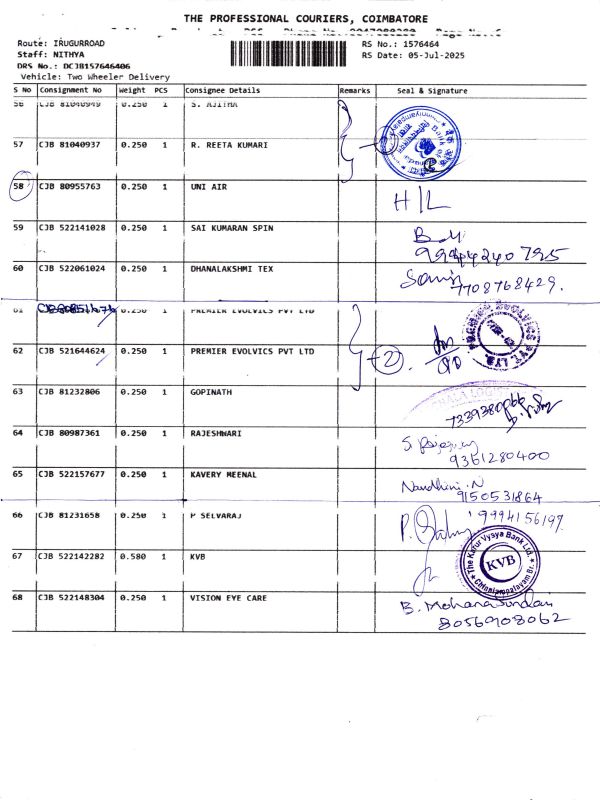 THE PROFESSIONAL COURIERS, COIMBATORE
Route: IRUGURROAD
RS No.: 1576464
Staff: NITHYA
RS Date: 05-Jul-2025
DRS No.: DCJB157646406
Vehicle: Two Wheeler Delivery
S No Consignment No Weight PCS Consignee Details Remarks Seal & Signature
56 CJB 81040949 0.250 1 S. AJITHA
57 CJB 81040937 0.250 1 R. REETA KUMARI
58 CJB 80955763 0.250 1 UNI AIR H/L
59 CJB 522141028 0.250 1 SAI KUMARAN SPIN
60 CJB 522061024 0.250 1 DHANALAKSHMI TEX
7708768429.
61 0.250 1 PREMIER EVOLVICS PVT LTD
62 CJB 521644624 0.250 1 PREMIER EVOLVICS PVT LTD (2)
63 CJB 81232806 0.250 1 GOPINATH
7339380066
64 CJB 80987361 0.250 1 RAJESHWARI
9361280400
65 CJB 522157677 0.250 1 KAVERY MEENAL Nandhini.N
9150531864
66 CJB 81231658 0.250 1 P SELVARAJ
67 CJB 522142282 0.580 1 KVB
The Karur Vysya Bank Ltd.
KVB
68 CJB 522148304 0.250 1 VISION EYE CARE
8056908062